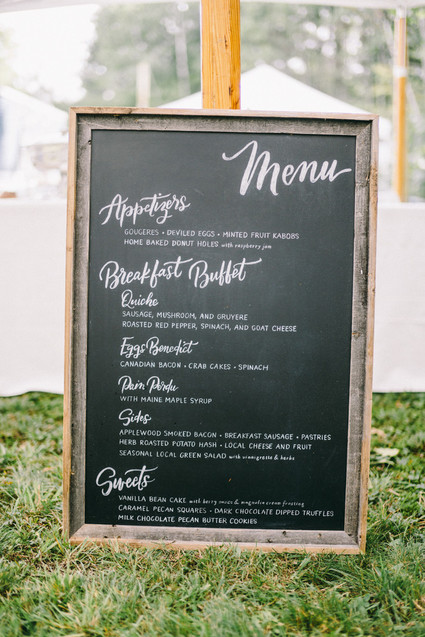 Menu
Appetizers
GOUGERES • DEVILED EGGS • MINTED FRUIT KABOBS
HOME BAKED DONUT HOLES with raspberry jam
Breakfast Buffet
Quiche
SAUSAGE, MUSHROOM, AND GRUYERE
ROASTED RED PEPPER, SPINACH, AND GOAT CHEESE
Eggs Benedict
CANADIAN BACON • CRAB CAKES • SPINACH
Pain Perdu
WITH MAINE MAPLE SYRUP
Sides
APPLEWOOD SMOKED BACON • BREAKFAST SAUSAGE • PASTRIES
HERB ROASTED POTATO HASH • LOCAL CHEESE AND FRUIT
SEASONAL LOCAL GREEN SALAD with vinaigrette & herbs
Sweets
VANILLA BEAN CAKE with berry and magnolia cream frosting
CARAMEL PECAN SQUARES • DARK CHOCOLATE DIPPED TRUFFLES
MILK CHOCOLATE PECAN BUTTER COOKIES